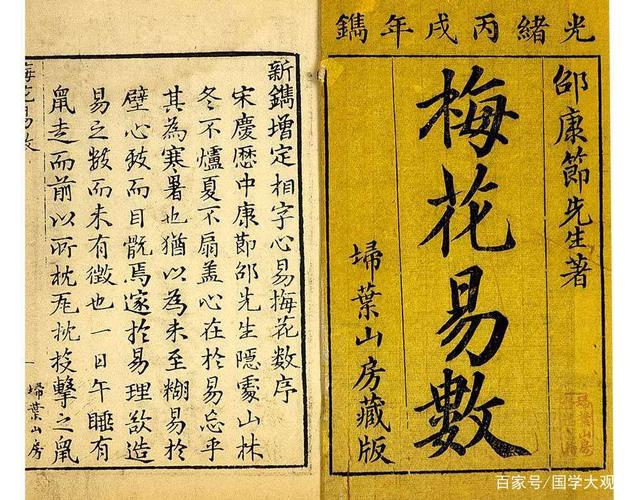 光緒丙戌年鐫
邵康節先生著
梅花易數
埽葉山房藏版
新鐫增定相字心易梅花數序
宋慶歴中康節邵先生隱處山林
冬不爐夏不扇蓋心在於易忘乎
其為寒暑也猶以為未至糊易於
壁心致而目翫焉邃於易理欲造
易之數而未有徵也一日午睡有
鼠走而前以所枕瓦枕投擊之鼠
埽葉山房
百家号/国学大观